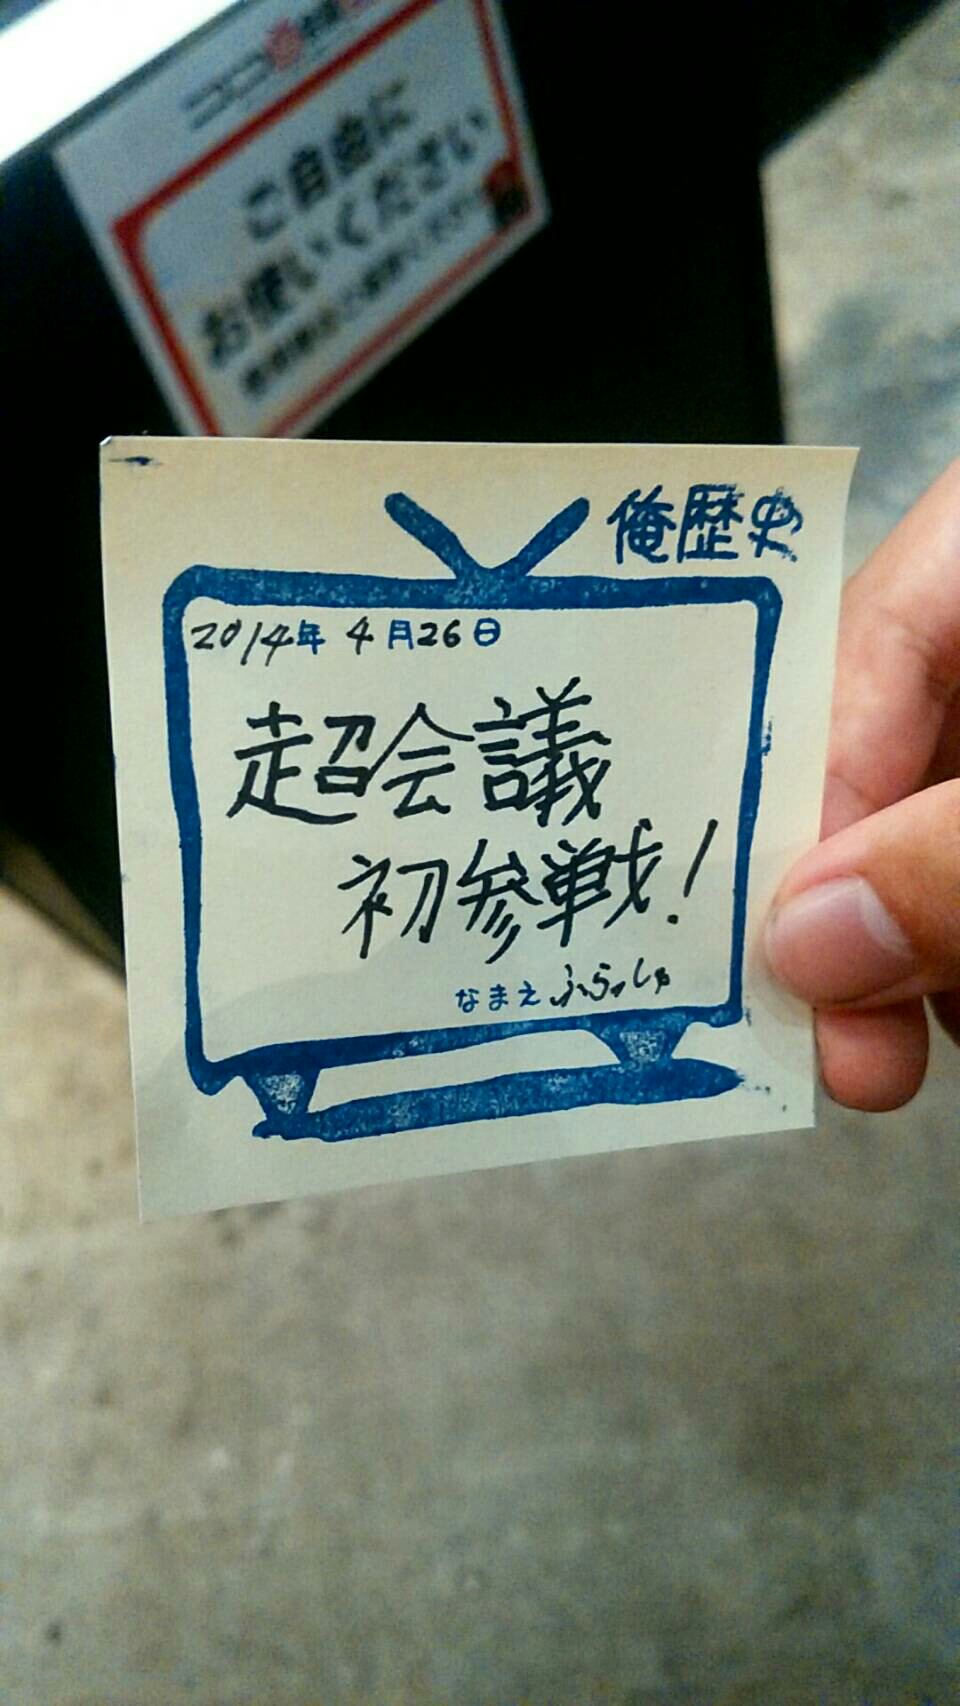 ご自由に
お使いください
俺歴史
2014年 4月26日
超会議
初参戦!
なまえ ふらっしゅ